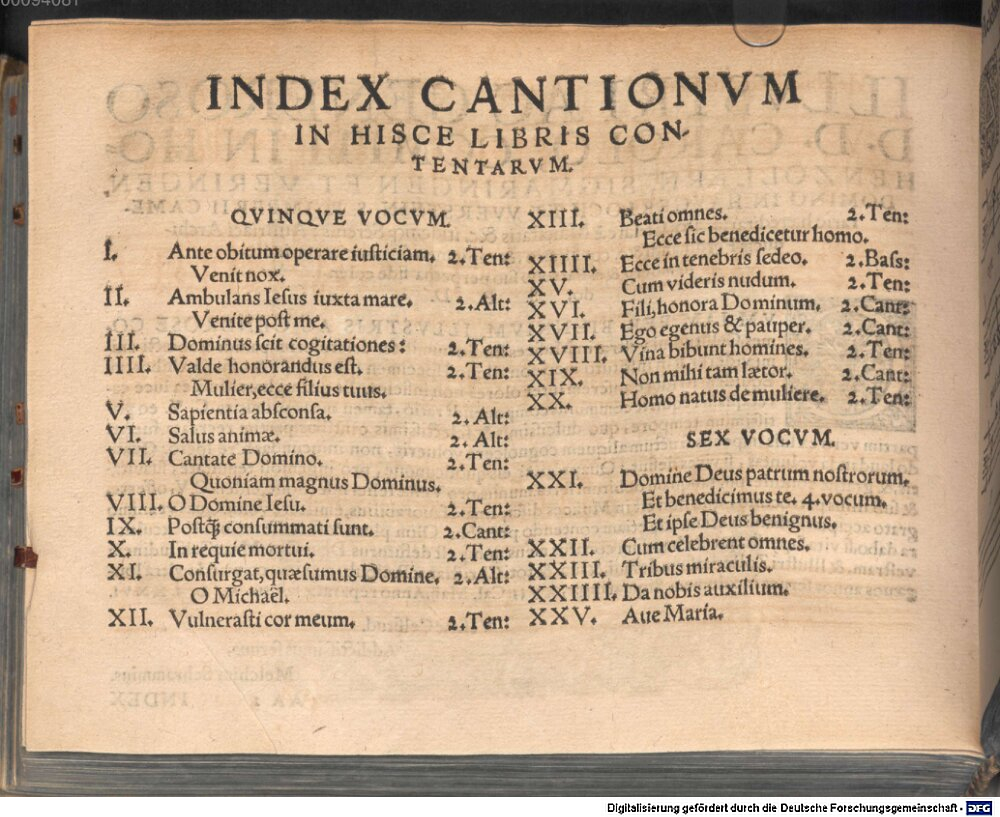 00094081
INDEX CANTIONVM
IN HISCE LIBRIS CON-
TENTARVM.
QVINQVE VOCVM.
I. Ante obitum operare iusticiam. 2. Ten:
Venit nox.
II. Ambulans Iesus iuxta mare. 2. Alt:
Venite post me.
III. Dominus scit cogitationes: 2. Ten:
IIII. Valde honorandus est. 2. Ten:
Mulier, ecce filius tuus.
V. Sapientia absconsa. 2. Alt:
VI. Salus animæ. 2. Alt:
VII. Cantate Domino. 2. Ten:
Quoniam magnus Dominus.
VIII. O Domine Iesu. 2. Ten:
IX. Postq̃; consummati sunt. 2. Cant:
X. In requie mortui. 2. Ten:
XI. Consurgat, quæsumus Domine. 2. Alt:
O Michaël.
XII. Vulnerasti cor meum. 2. Ten:
XIII. Beati omnes. 2. Ten:
Ecce sic benedicetur homo.
XIIII. Ecce in tenebris sedeo. 2. Bass:
XV. Cum videris nudum. 2. Ten:
XVI. Fili, honora Dominum. 2. Cant:
XVII. Ego egenus & pauper. 2. Cant:
XVIII. Vina bibunt homines. 2. Ten:
XIX. Non mihi tam lætor. 2. Cant:
XX. Homo natus de muliere. 2. Ten:
SEX VOCVM.
XXI. Domine Deus patrum nostrorum.
Et benedicimus te. 4. vocum.
Et ipse Deus benignus.
XXII. Cum celebrent omnes.
XXIII. Tribus miraculis.
XXIIII. Da nobis auxilium.
XXV. Aue Maria.
Digitalisierung gefördert durch die Deutsche Forschungsgemeinschaft - DFG